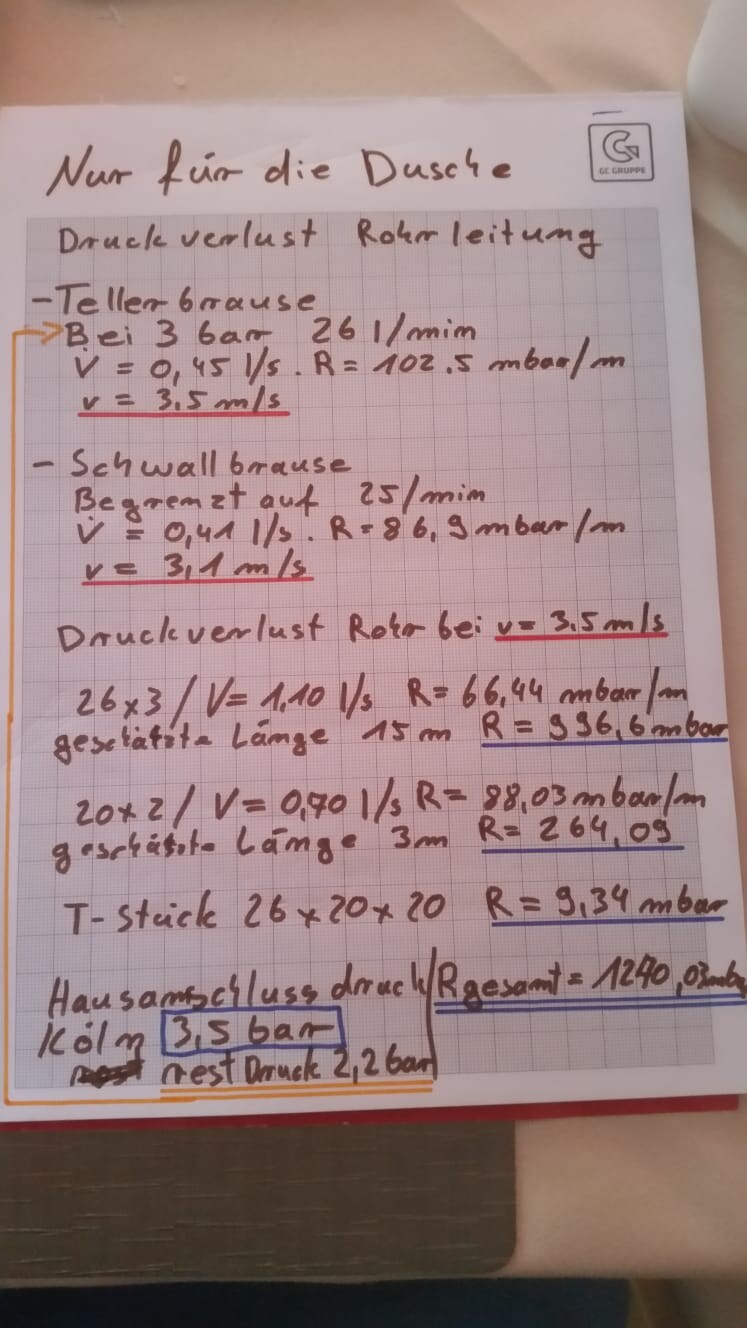 Nur für die Dusche
GC GRUPPE
Druckverlust Rohrleitung
- Tellerbrause
Bei 3 bar 26 l/min
V̇ = 0,45 l/s. R = 102.5 mbar/m
v = 3.5 m/s
- Schwallbrause
Begrenzt auf 25/min
V̇ = 0,41 l/s. R = 86,9 mbar/m
v = 3,1 m/s
Druckverlust Rohr bei v = 3.5 m/s
26x3 / V = 1,10 l/s R = 66,44 mbar/m
geschätzte Länge 15 m R = 996,6 mbar
20x2 / V = 0,70 l/s R = 88,03 mbar/m
geschätzte Länge 3m R = 264,09
T-Stück 26x20x20 R = 9,34 mbar
Hausanschlussdruck Rgesamt = 1270,03 mbar
Köln 3,5 bar
rest Druck 2,2 bar